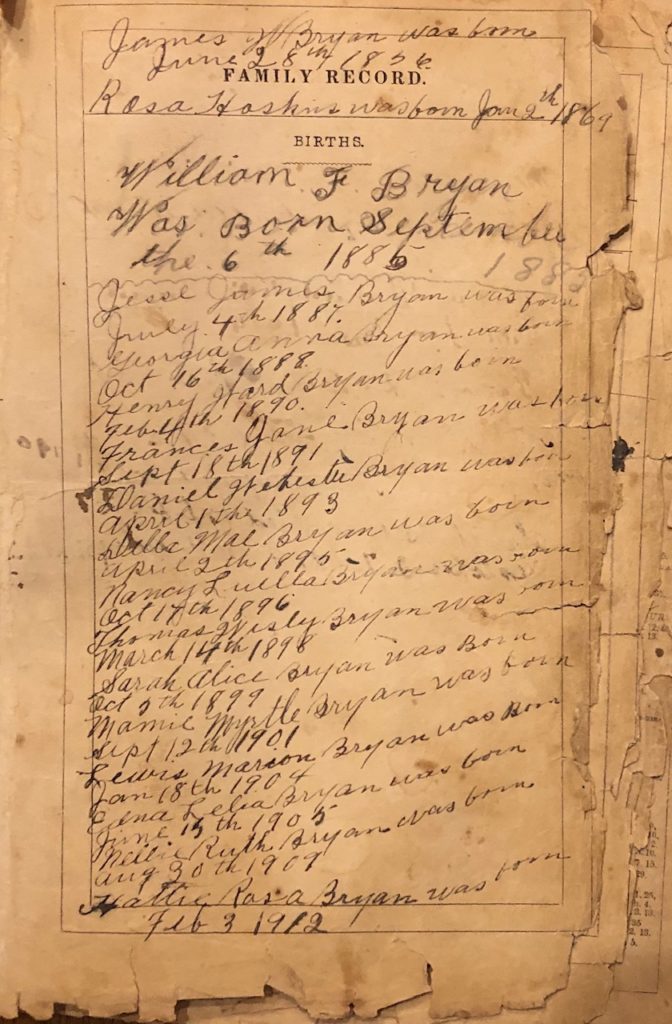 James W Bryan was born
June 28th 1856
FAMILY RECORD.
Rosa Hoskins was born Jan 2th 1869
BIRTHS.
William F Bryan
Was Born September
the 6th 1885 1885
Jesse James Bryan was born
July 4th 1887.
Georgia Anna Bryan was born
Oct 16th 1888.
Henry Ward Bryan was born
Feb 1890.
Frances Jane Bryan was born
Sept 18th 1891
Daniel Webester Bryan was born
April 1th 1893
Della Mae Bryan was born
April 2th 1895
Nancy Luella Bryan was born
Oct 17th 1896
Thomas Wesly Bryan was born
March 14th 1898
Sarah Alice Bryan was Born
Oct 5th 1899
Mamie Myrtle Bryan was born
Sept 12th 1901
Lewis Marion Bryan was Born
Jan 18th 1904
Lelia Bryan was born
June 15th 1905
Nellie Ruth Bryan was born
Aug 30th 1909
Hattie Rosa Bryan was born
Feb 3 1912